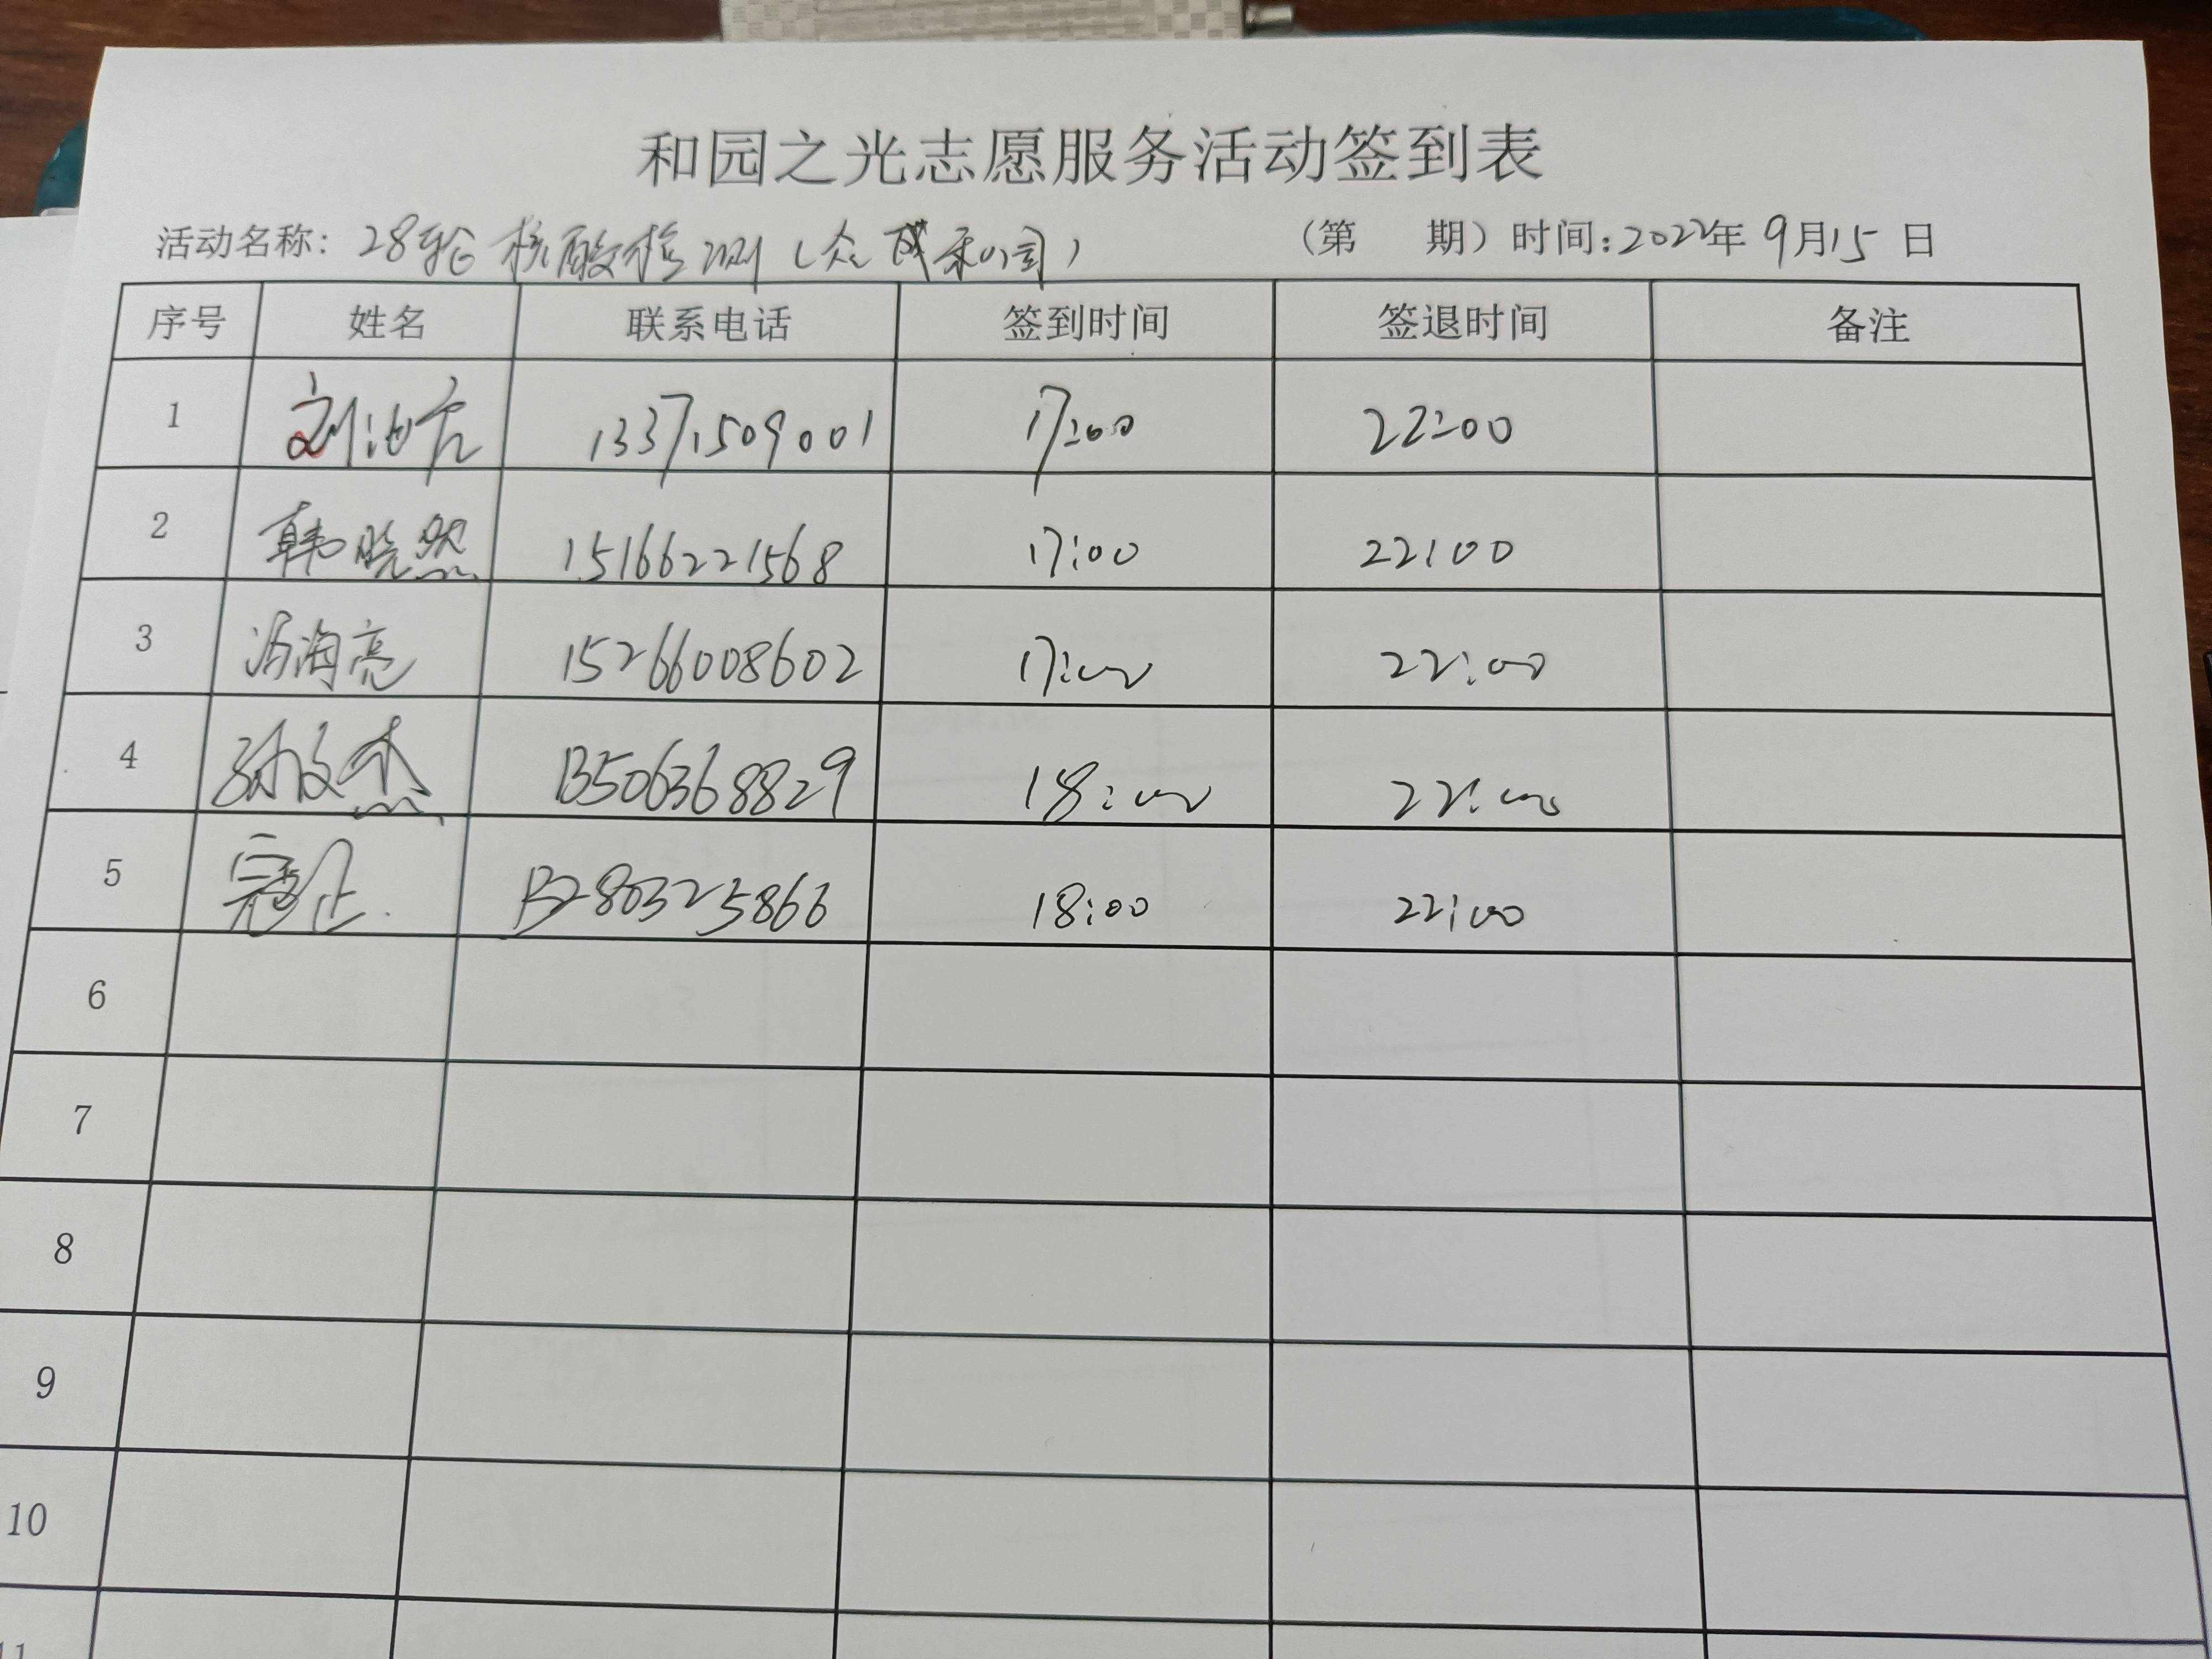 和园之光志愿服务活动签到表
活动名称: 28轮核酸检测(众成 公司) (第 期) 时间:2022年9月15日
序号 姓名 联系电话 签到时间 签退时间 备注
1 刘 13371509001 17:00 22:00
2 韩晓然 15166221568 17:00 22:00
3 冯海亮 15266008602 17:00 22:00
4 孙文杰 13506368829 18:00 22:00
5 13280325866 18:00 22:00
6
7
8
9
10
11